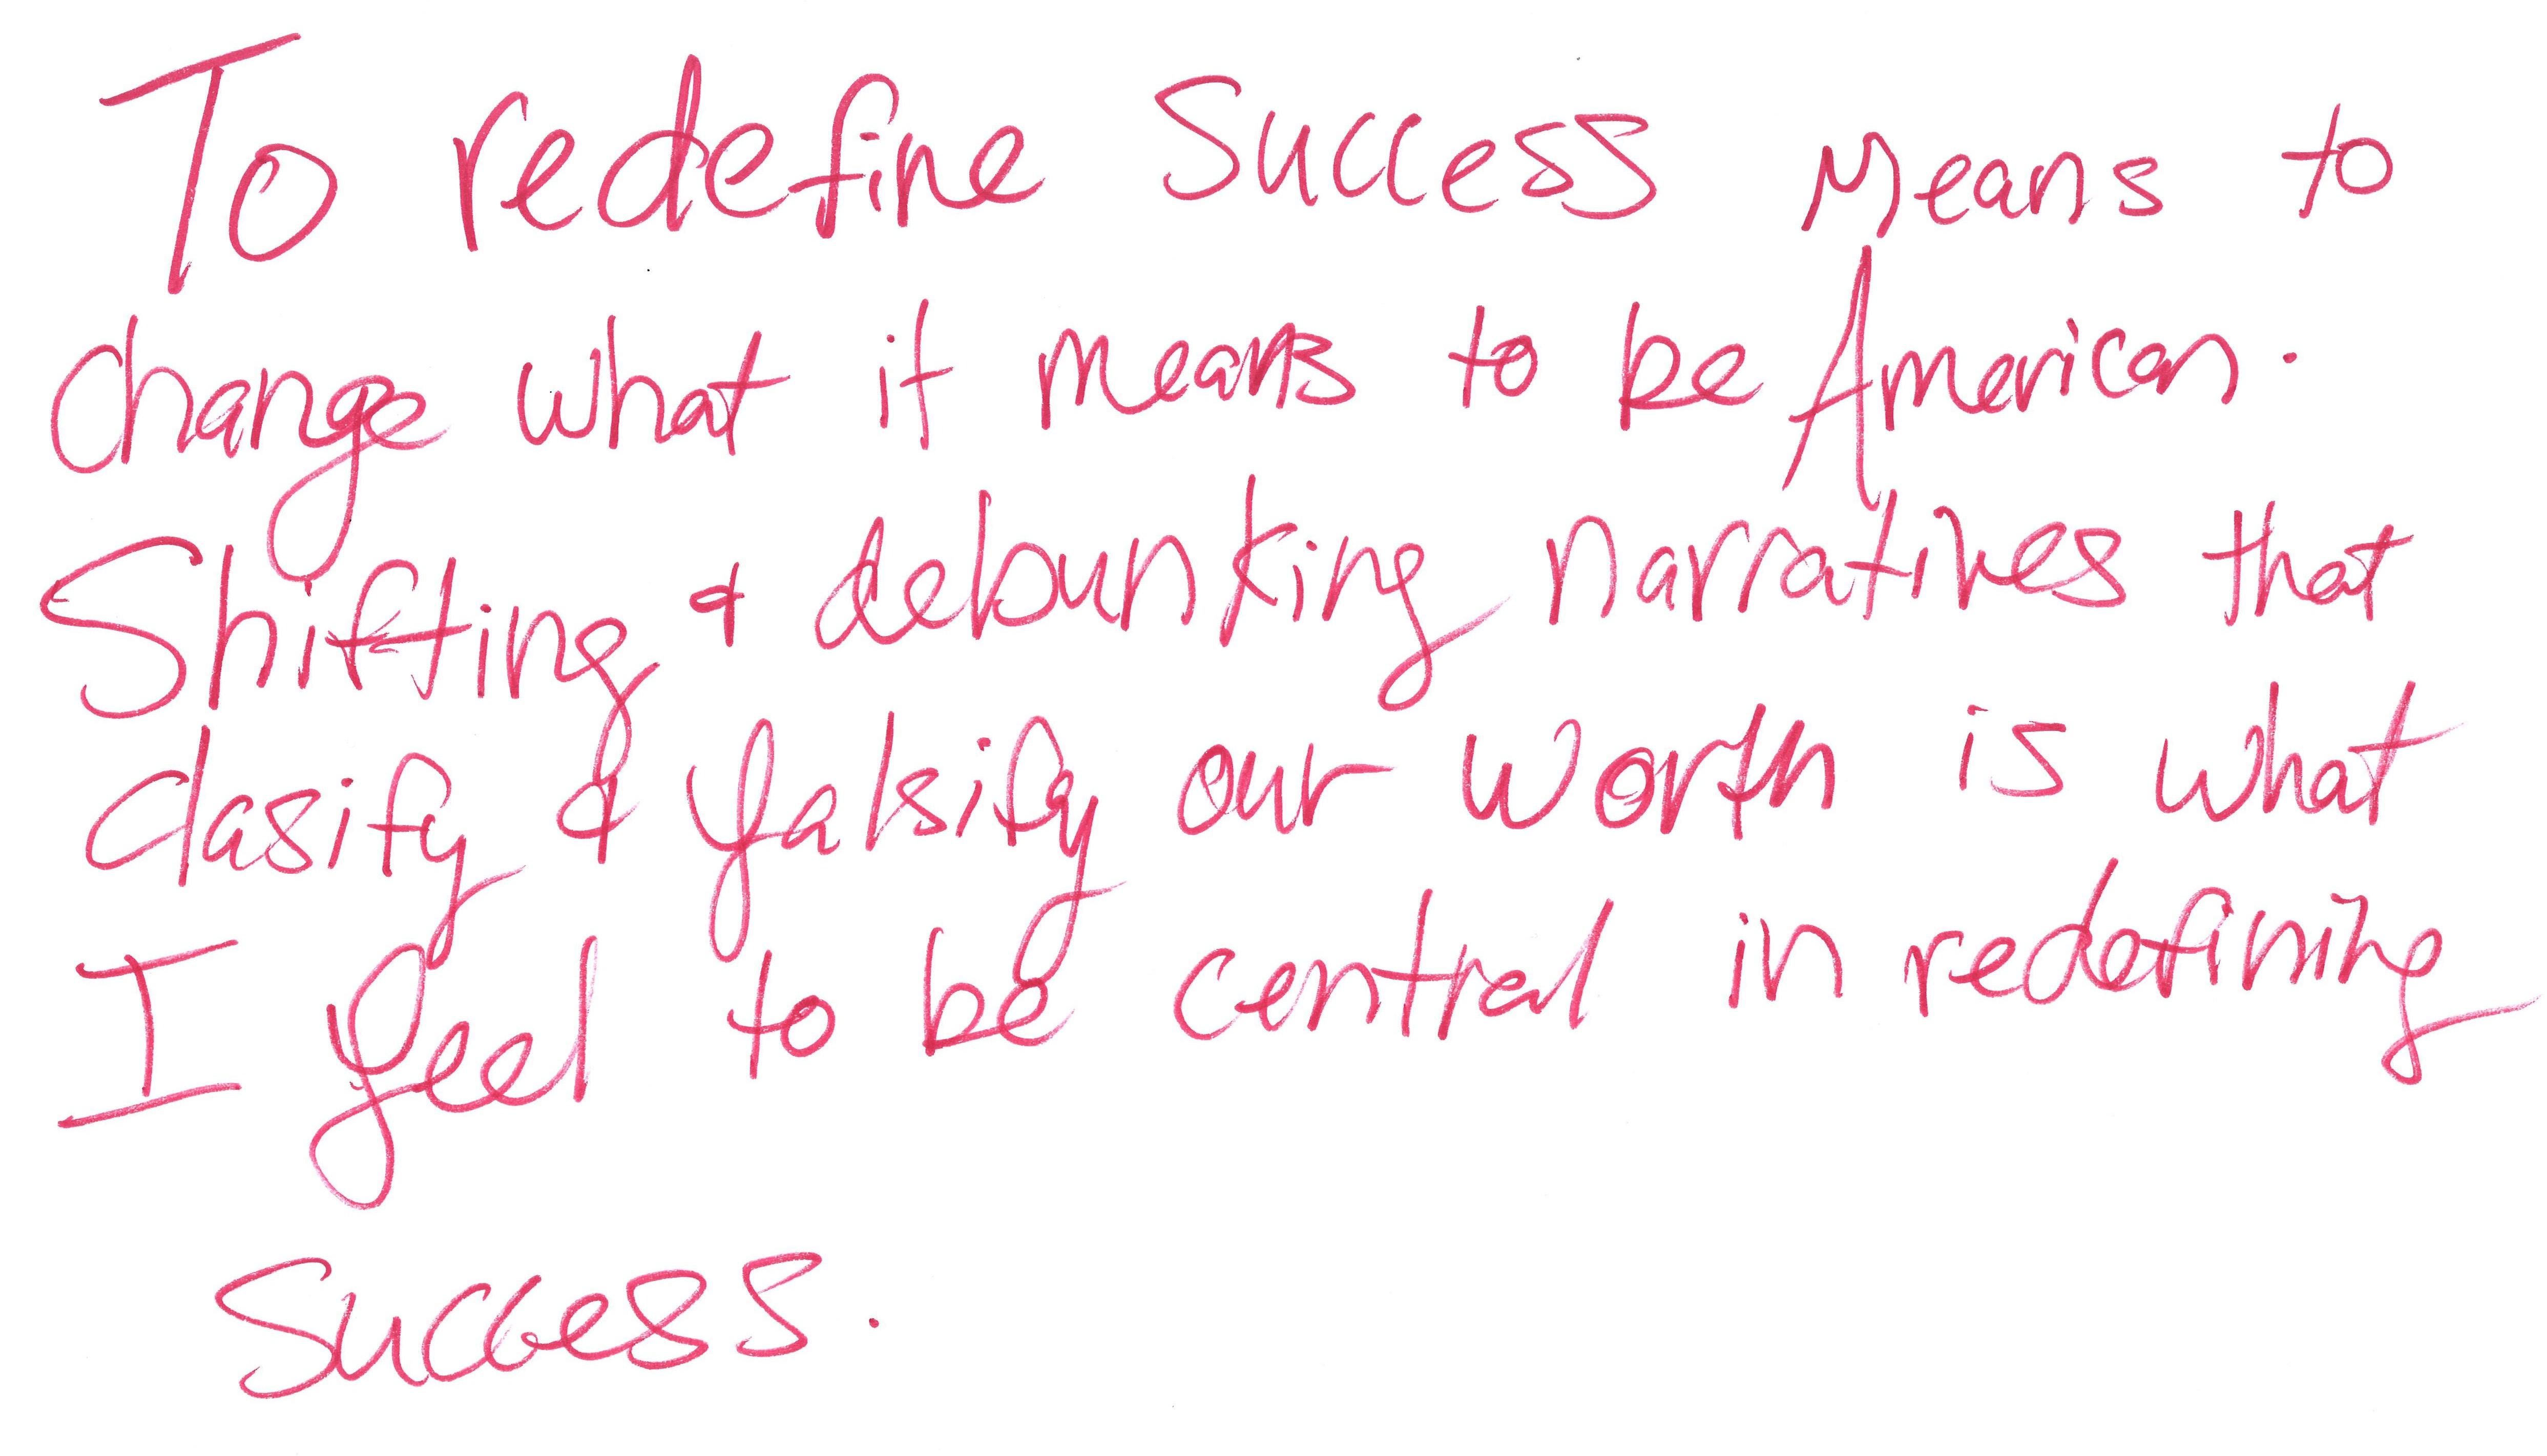 To redefine Success Means to
change what it means to be American.
Shifting & debunking narratives that
clasify & falsify our worth is what
I feel to be central in redefining
success.